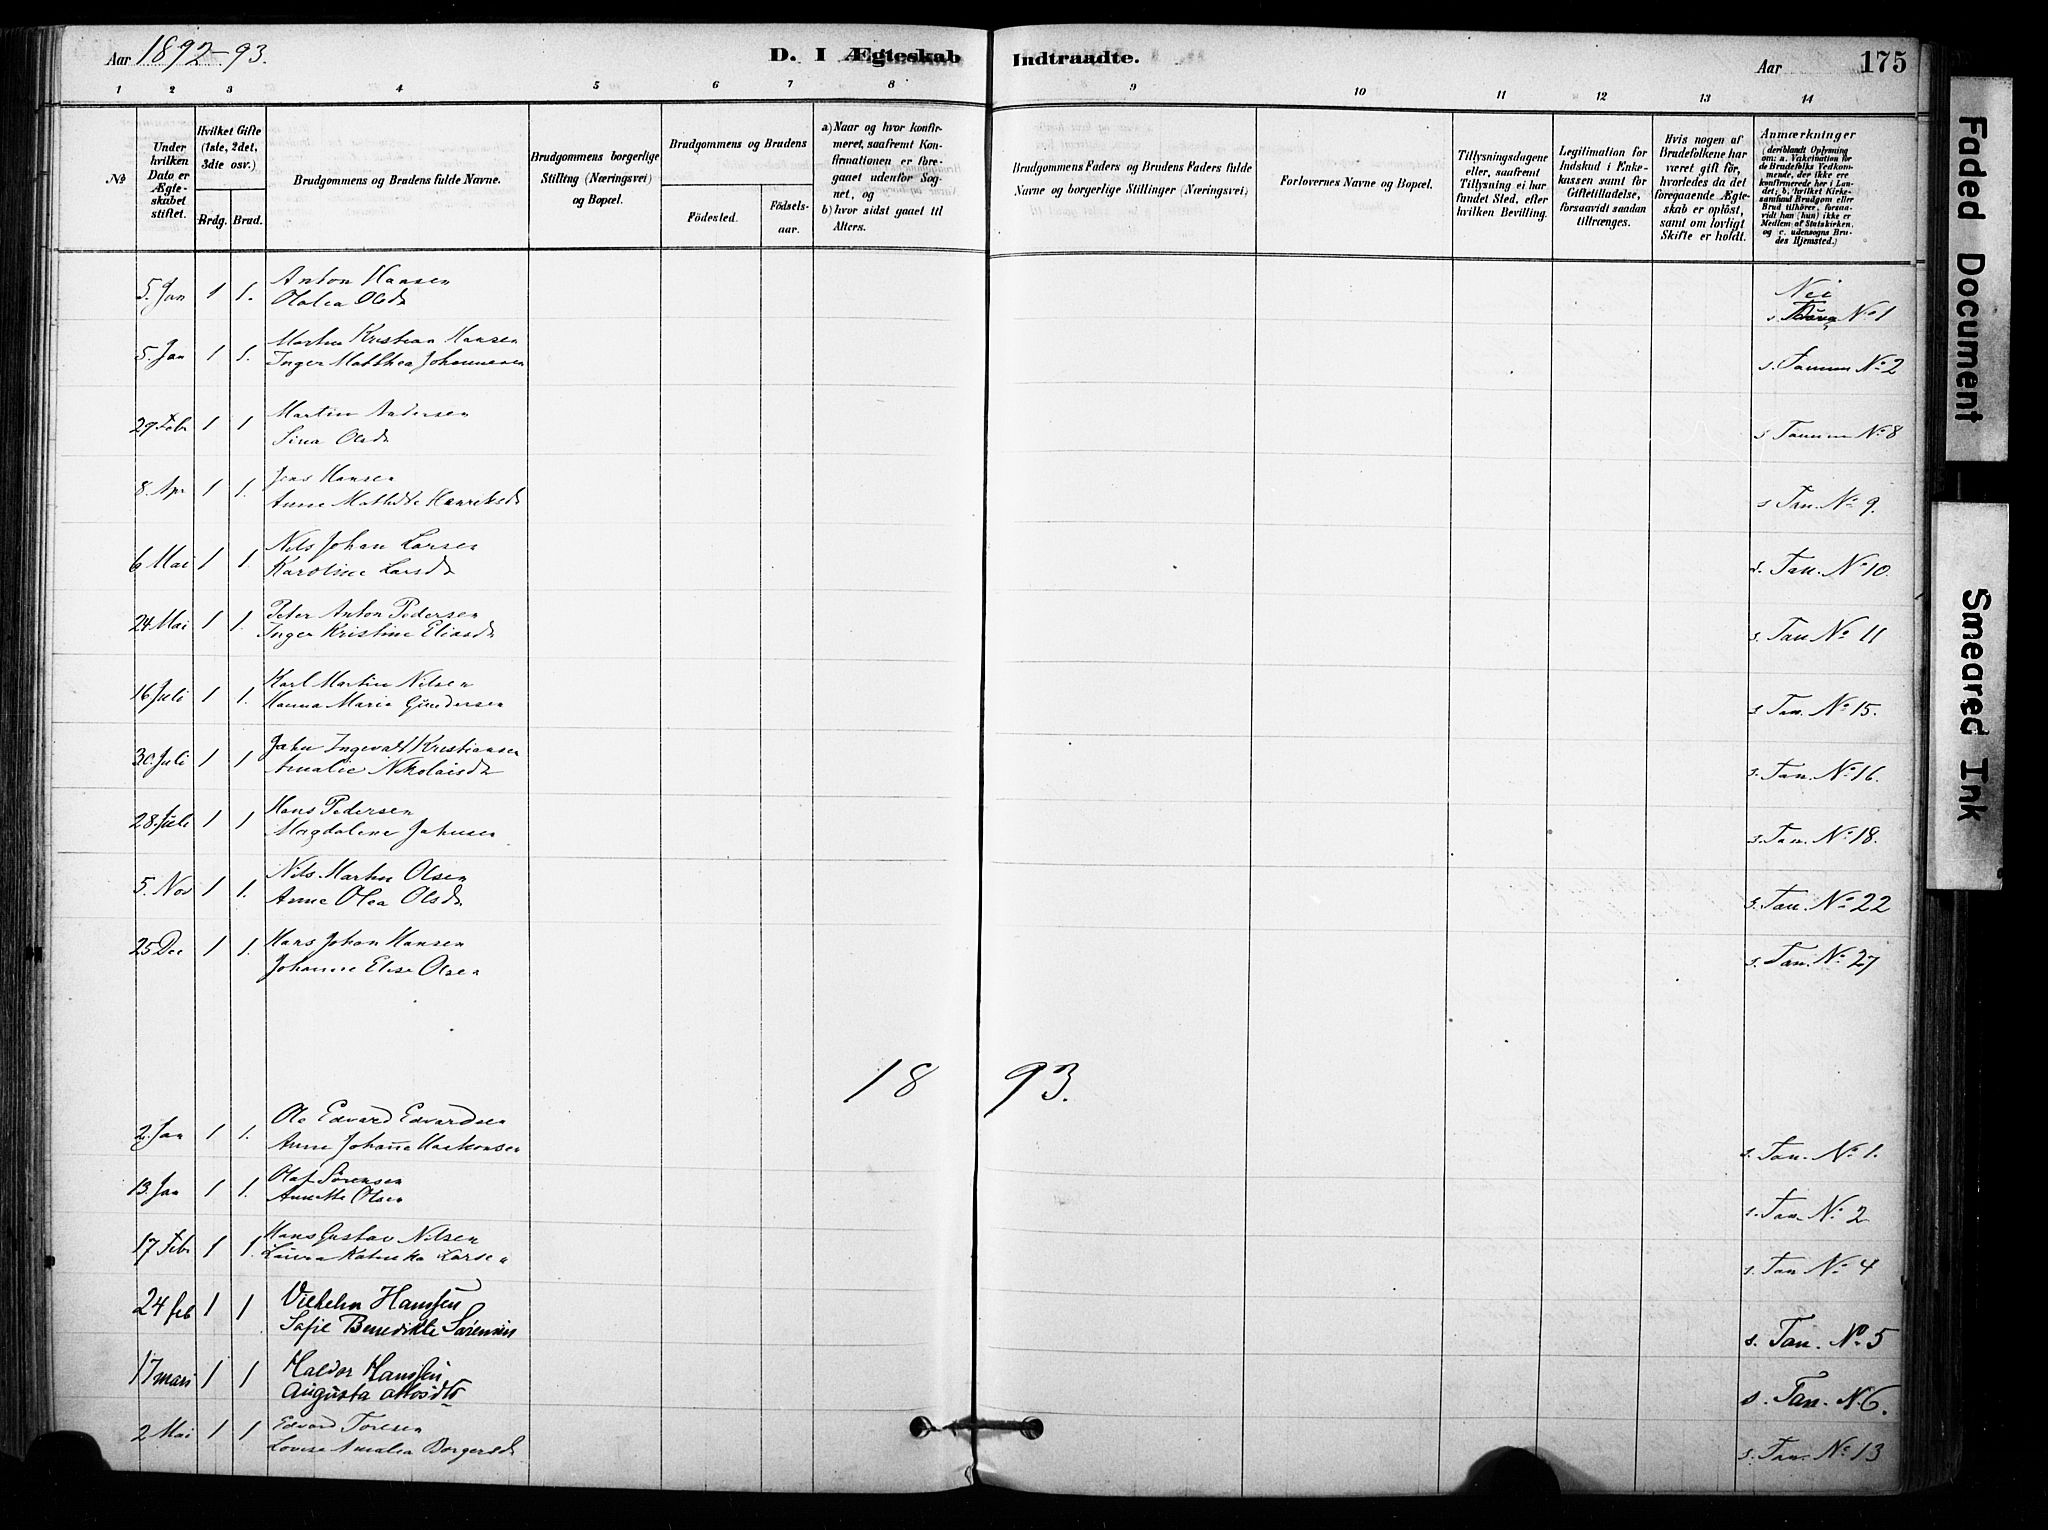 Aar 1892-93.
D. I Ægteskab Indtraadte.
Aar 175
1 2 3 4 5 6 7 8 9 10 11 12 13 14
No
Under hvilken Dato er Ægteskabet stiftet.
Hvilket Gifte (1ste, 2det, 3die osv.)
Brdg. Brud.
Brudgommens og Brudens fulde Navne.
Brudgommens borgerlige Stilling (Næringsvei) og Bopæl.
Brudgommens og Brudens
Fødested. Fødselsaar.
a) Naar og hvor konfirmeret, saafremt Konfirmationen er foregaaet udenfor Sognet, og
b) hvor sidst gaaet til Alters.
Brudgommens Faders og Brudens Faders fulde Navne og borgerlige Stillinger (Næringsvei)
Forlovernes Navne og Bopæl.
Tillysningsdagene eller, saafremt Tillysning ei har fundet Sted, efter hvilken Bevilling.
Legitimation for Indskud i Enkekassen samt for Giftetilladelse, forsaavidt saadan tiltrænges.
Hvis nogen af Brudefolkene har været gift før, hvorledes da det foregaaende Ægteskab er opløst, samt om lovligt Skifte er holdt.
Anmærkninger (deriblandt Oplysning om: a. Vakcination for de Brudefolks Vedkommende, der ikke ere konfirmerede her i Landet; b. hvilket Kirkesamfund Brudgom eller Brud tilhører, forsaavidt han (hun) ikke er Medlem af Statskirken, og c. udensogns Brudes Hjemsted.)
5. Jan 1 1. Anton Hansen
Olalia Olsdr Nei s. No 1
5. Jan 1 1. Martin Kristian Hansen
Inger Matthea Johannesen s. Tanum No 2
29 Febr 1 1 Martin Andersen
Sina Olsdr s Tanum No 8
8. Apr 1 1. Jens Hansen
Anne Mathilde Henriksdr s Tan. No 9.
6 Mai 1 1. Nils Johan Larsen
Karoline Larsdr s. Tan. No 10.
24 Mai 1 1. Peter Anton Pedersen
Inger Kristine Eliasdr s. Tan No 11
16 Juli 1 1. Karl Martin Nilsen
Hanna Maria Gundersen s Tan. No 15.
30. Juli 1 1 John Ingevald Kristiansen
Amalie Nikolaisdr s. Tan. No 16.
28. Juli 1 1 Hans Pedersen
Magdalene Johnsen s. Tan. No 18.
5. Nov 1 1. Nils Martin Olsen
Anne Olea Olsdr s. Tan. No 22
25 Dec 1 1. Hans Johan Hansen
Johanne Elise Olsen s. Tan. No 27
1893.
2. Jan 1 1. Ole Edvard Edvardsen
Anne Johanne Haakonsen s. Tan. No 1.
13. Jan 1 1. Olaf Sørensen
Annette Olsen s. Tan. No 2
17 Febr 1 1. Hans Gustav Nilsen
Laura Katinka Larsen s. Tan No 4
24 feb 1 1 Vilhelm Hanssen
Sofie Benedikte Sørensen s. Tan. No 5
17 mars 1 1 Haldor Hanssen
Augusta Ottosdtr s. Tan. N. 6.
2 Mai 1 1 Edvard Toresen
Lovise Amalia Borgersdr s. Tan No 13
Faded Document
Smeared Ink